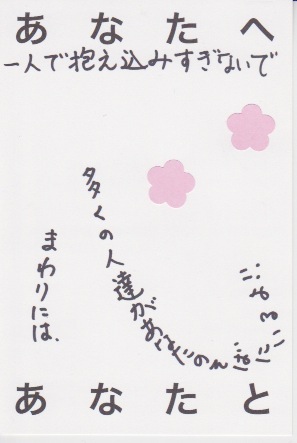 あなたへ
一人で抱え込みすぎないで
まわりには、
多くの人達があなたのそばにいるよ!!
あなたと